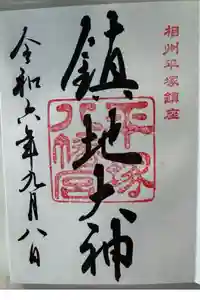 相州平塚鎮座
鎮地大神
平塚八幡宮
令和六年九月八日